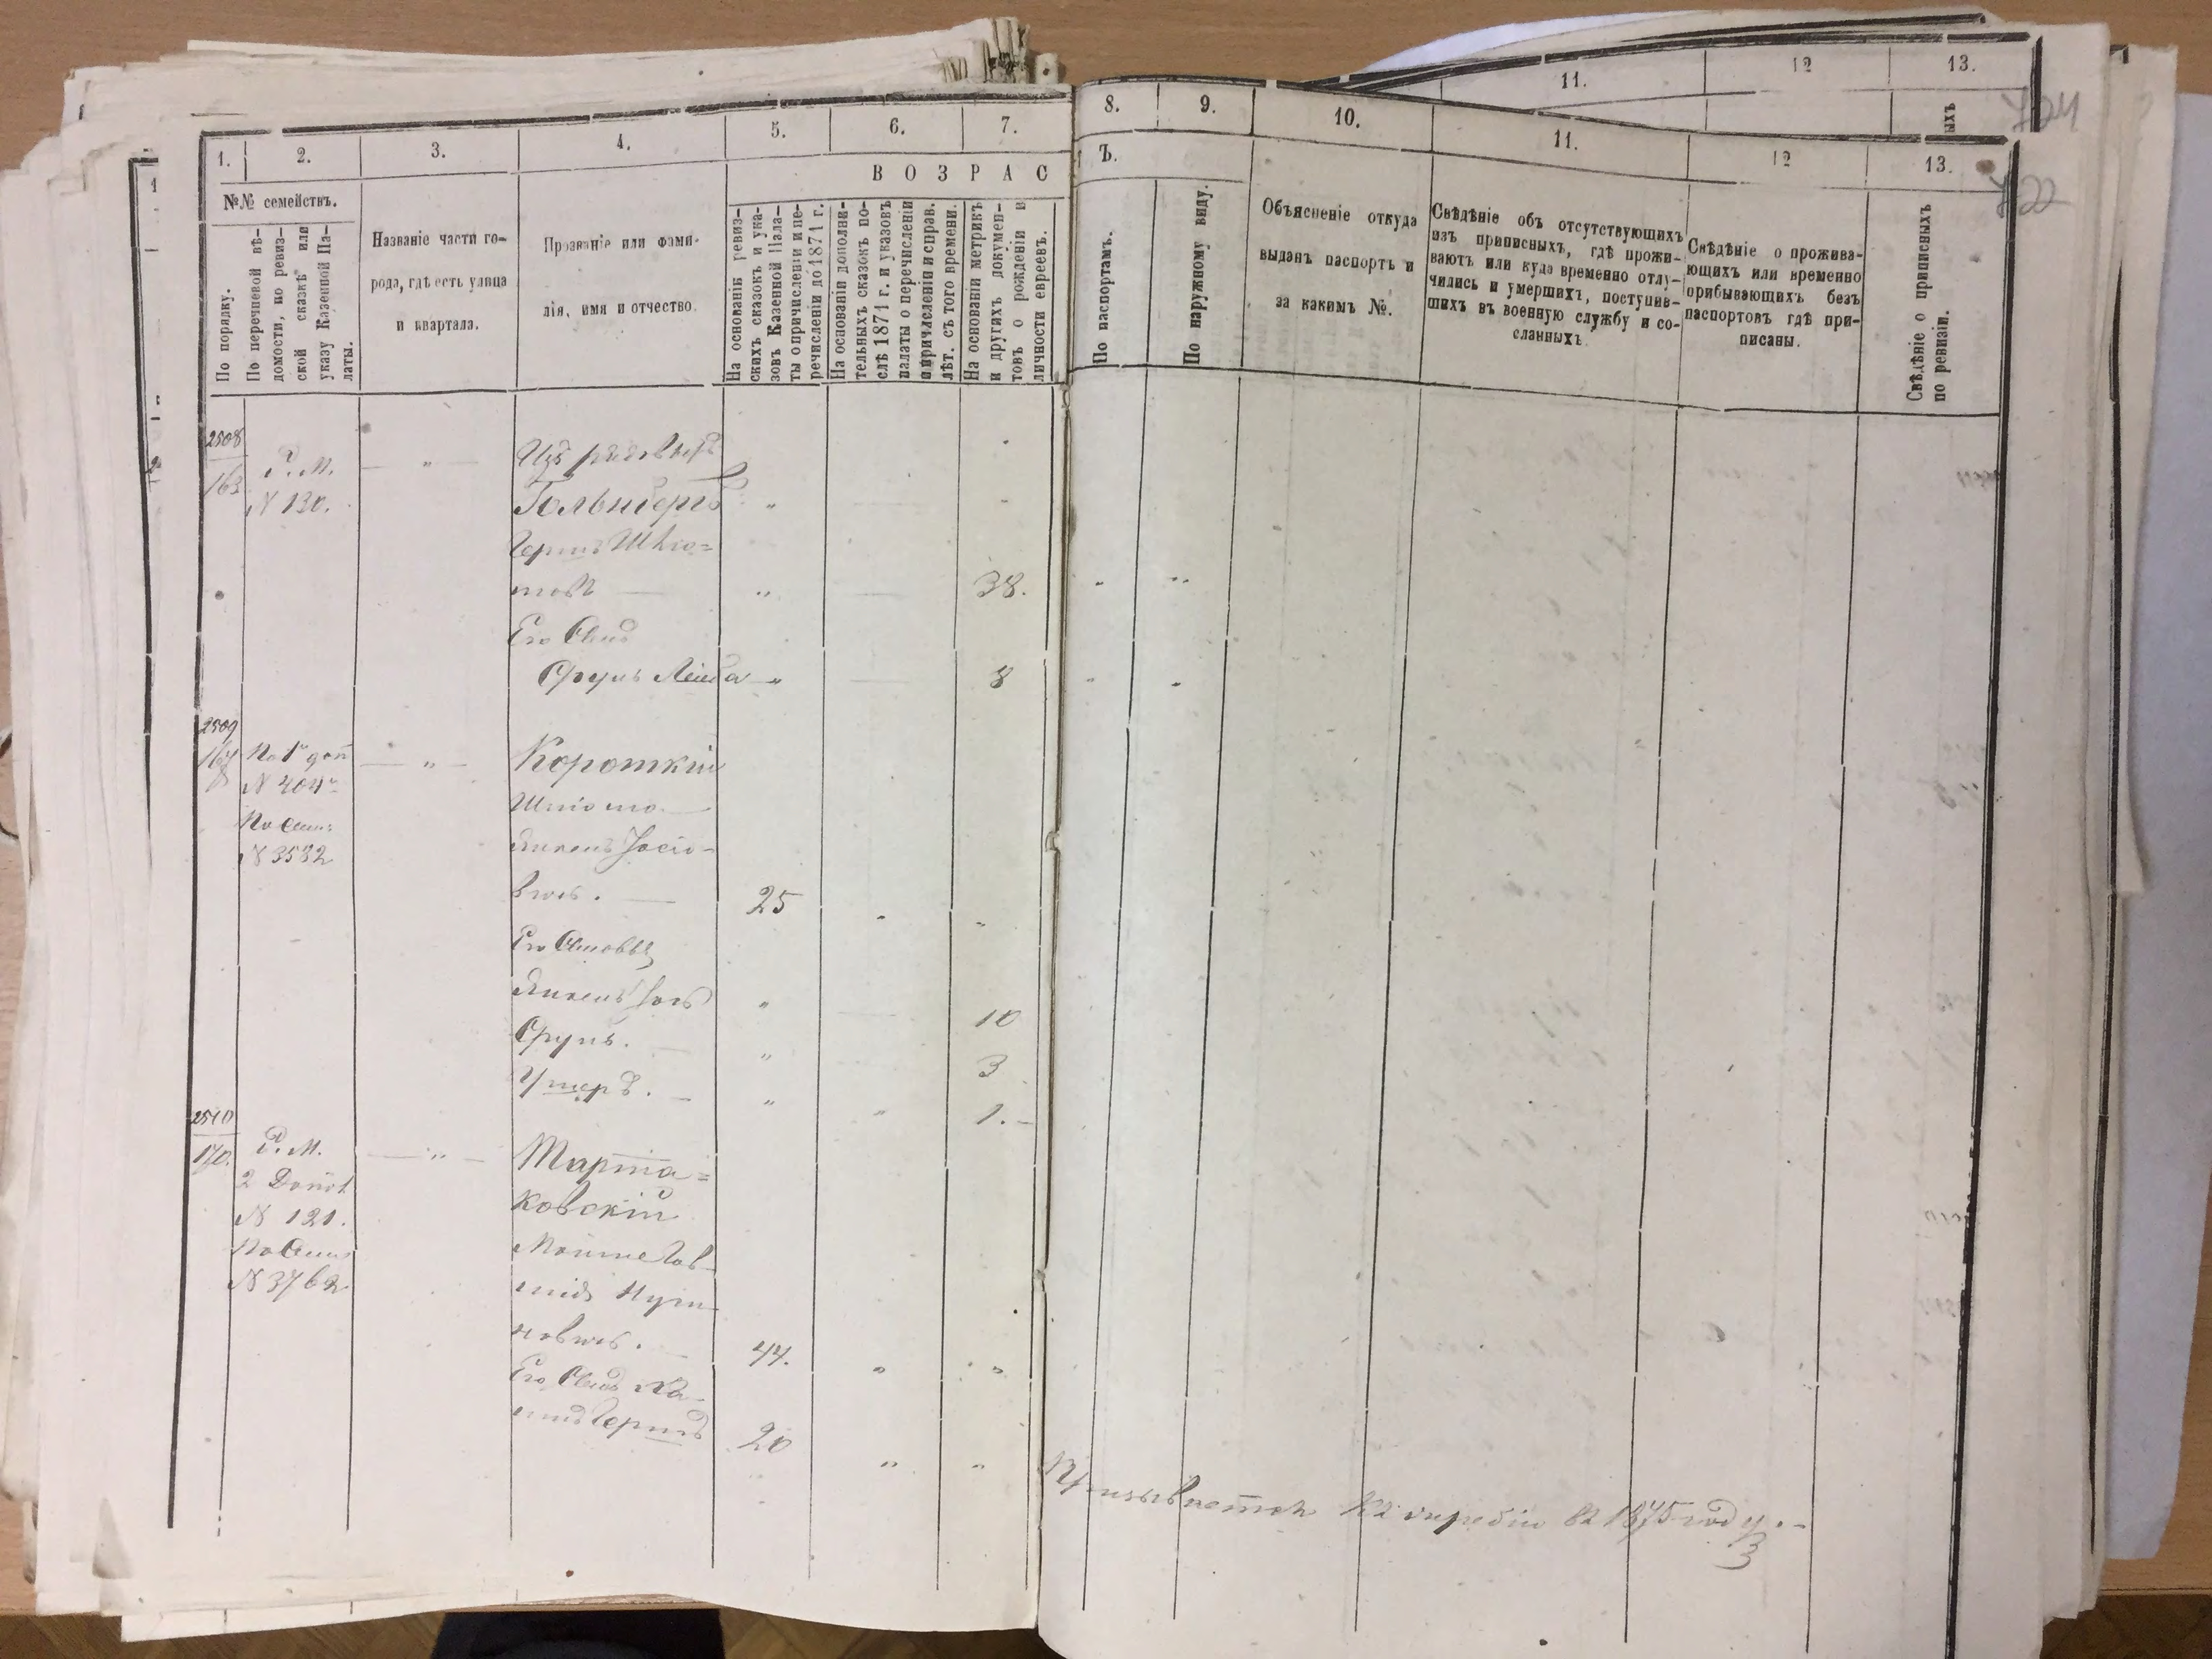 11.
12
13.
ыхъ
724
1.
2.
3.
4.
5.
6.
7.
8.
9.
10.
11.
12
13.
722
№№ семействъ.
По порядку.
По перечневой вѣ-
домости, по ревиз-
ской сказкѣ или
указу Казенной Па-
латы.
Названіе части го-
рода, гдѣ есть улица
и квартала.
Прозваніе или фами-
лія, имя и отчество.
ВОЗРАС
Ъ.
На основаніи ревиз-
скихъ сказокъ и ука-
зовъ Казенной Пала-
ты о причисленіи и пе-
речисленіи до 1871 г.
На основаніи дополни-
тельныхъ сказокъ по-
слѣ 1871 г. и указовъ
палаты о перечисленіи
и причисленіи и справ.
лѣт. съ того времени.
На основаніи метрикъ
и другихъ докумен-
товъ о рожденіи и
личности евреевъ.
По паспортамъ.
По наружному виду.
Объясненіе откуда
выданъ паспортъ и
за какимъ №.
Свѣдѣніе объ отсутствующихъ
изъ приписныхъ, гдѣ прожи-
ваютъ или куда временно отлу-
чились и умершихъ, поступив-
шихъ въ военную службу и со-
сланныхъ.
Свѣдѣніе о прожива-
ющихъ или временно
прибывающихъ безъ
паспортовъ гдѣ при-
писаны.
Свѣдѣніе о приписныхъ
по ревизіи.
2508
163
Р. М.
N 130.
Изъ рядовыхъ
Гольдбергъ
Гершъ Шліо-
мовъ 38.
Его Сынъ
Срулъ Лейба 8
2509
По 1 доп
N 404
N 3582
Короткій
Шліома
Янкель Іосіо-
вичъ. 25
Его Сыновья
Янкель Іось 10
Срулъ. 3
Ушеръ. 1.
2510
170.
Р. М.
2 Допол
N 121.
N 3762
Марта-
ковскій
Мойше
новичъ. 44.
Его Сынъ Ха-
имъ Гершъ 20
Призывается къ жребію въ 1875 году.